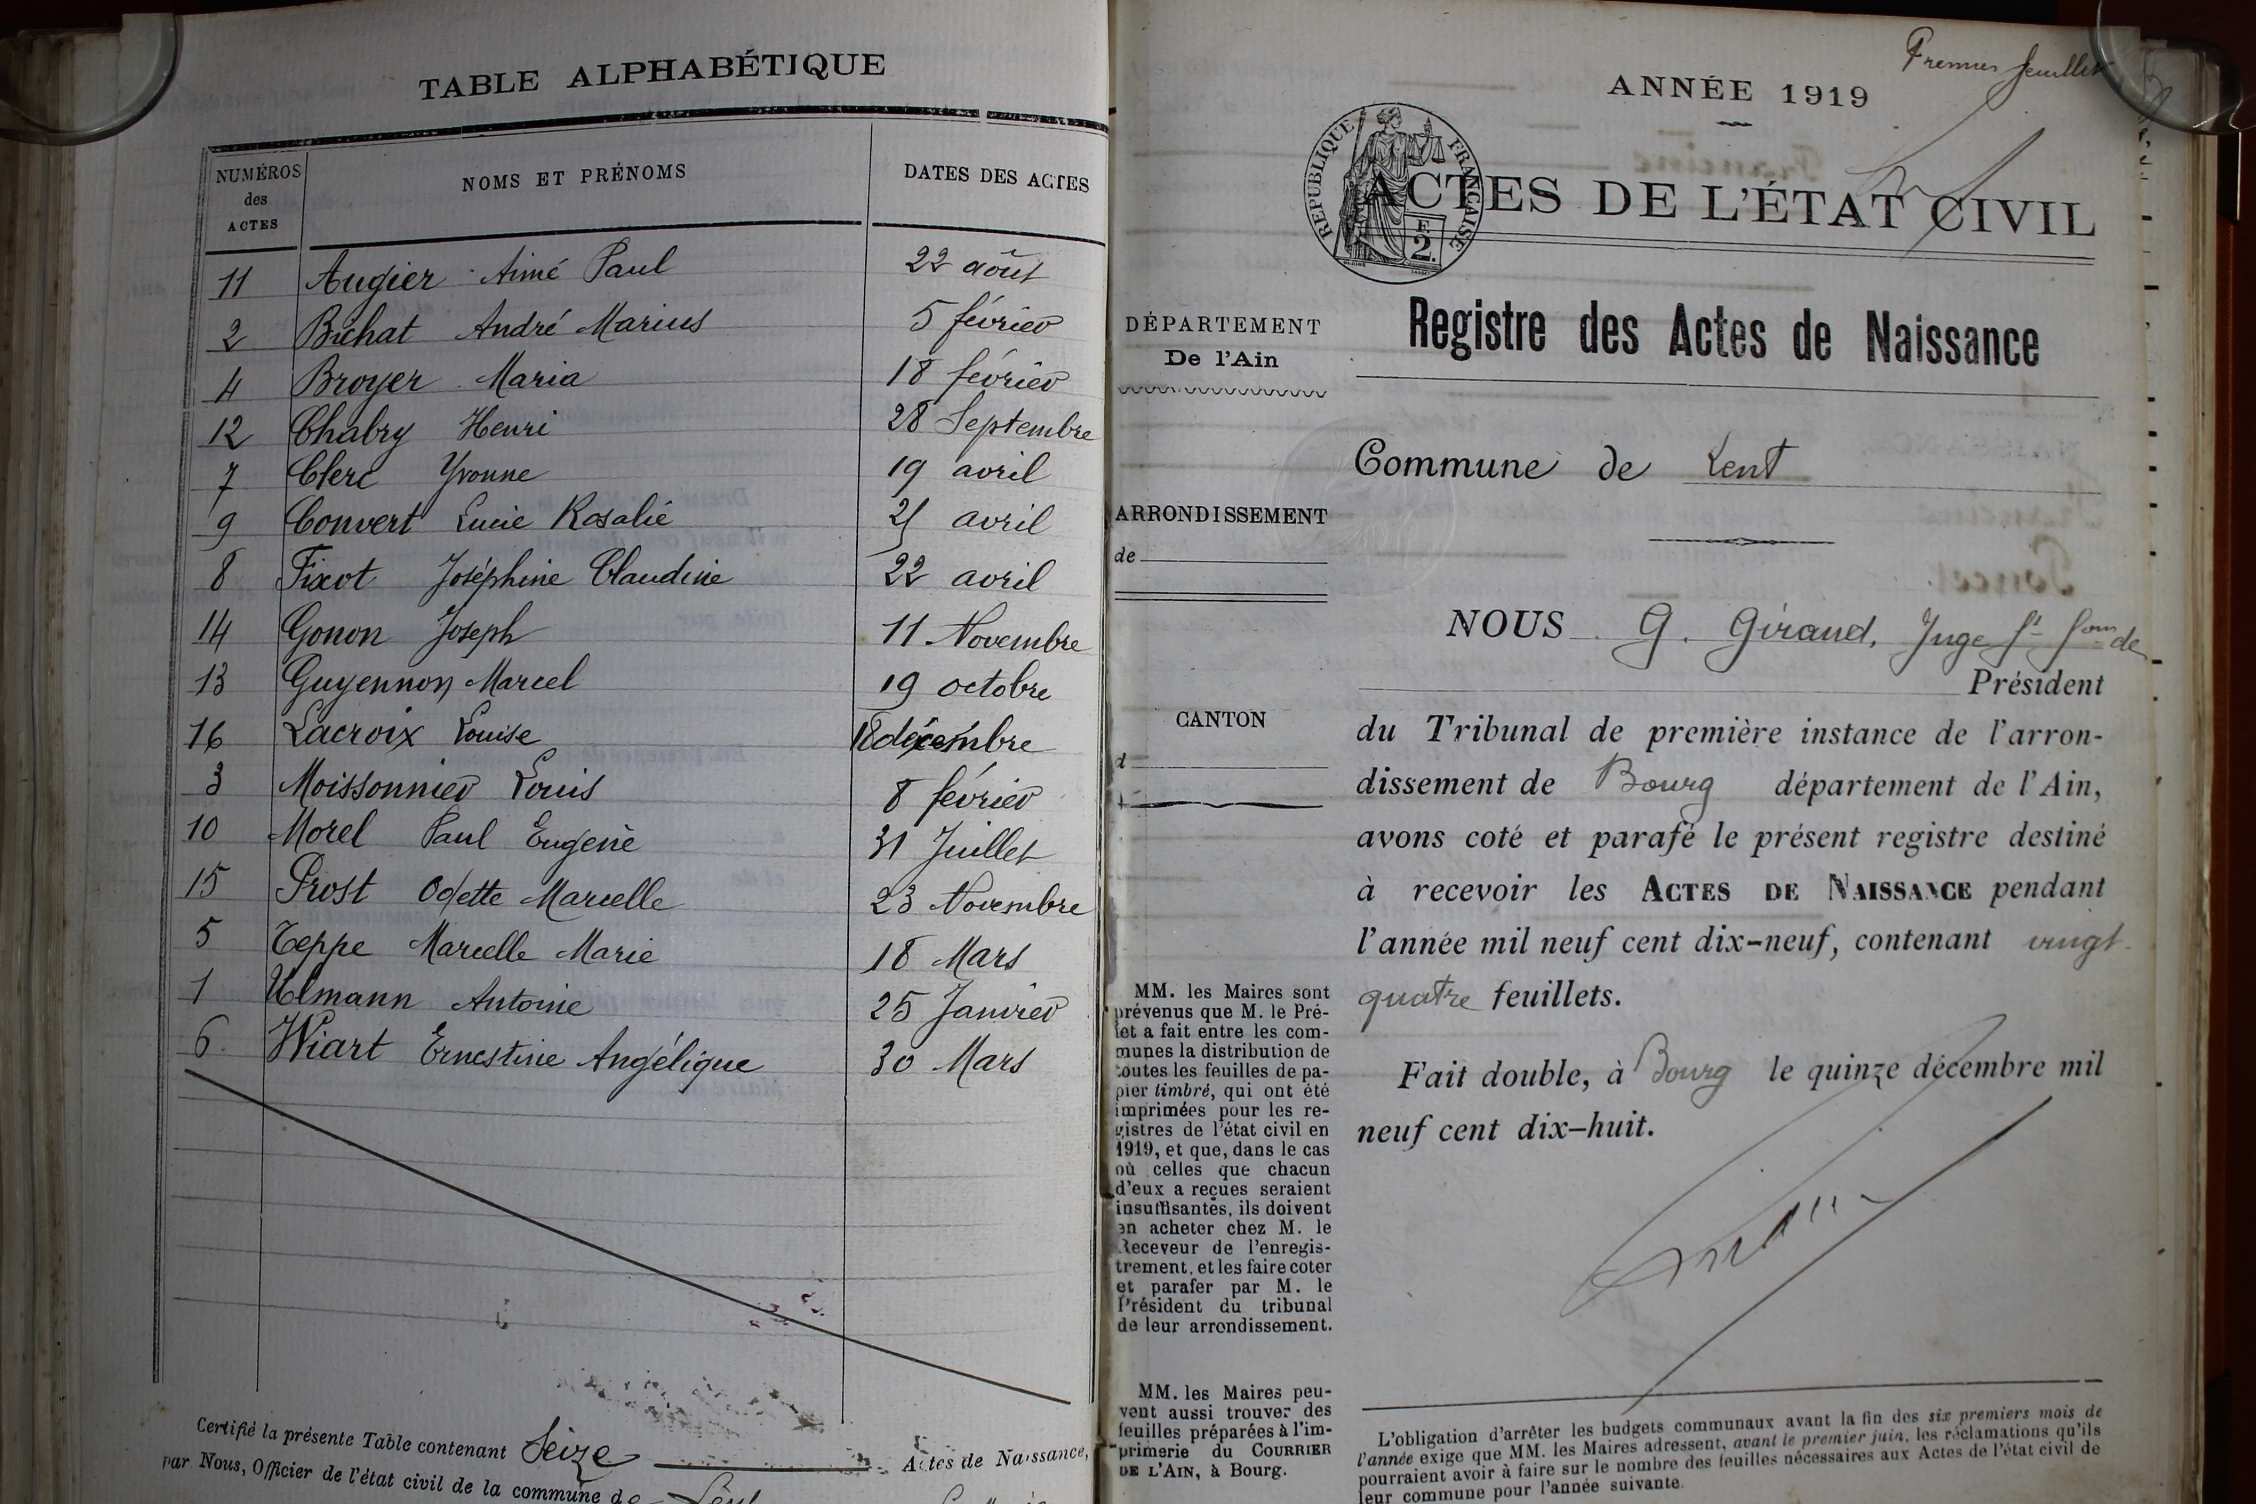 TABLE ALPHABÉTIQUE
NUMÉROS des ACTES NOMS ET PRÉNOMS DATES DES ACTES
11 Augier Aimé Paul 22 août
2 Bichat André Marius 5 février
4 Broyer Maria 18 février
12 Chabry Henri 28 Septembre
7 Clerc Yvonne 19 avril
9 Convert Lucie Rosalie avril
8 Fixot Joséphine Claudine 22 avril
14 Gonon Joseph 11 Novembre
13 Guyennon Marcel 19 octobre
16 Lacroix Louise 18 décembre
3 Moissonnier Louis 8 février
10 Morel Paul Eugène 31 Juillet
15 Prost Odette Marcelle 23 Novembre
5 Teppe Marcelle Marie 18 Mars
1 Ulmann Antoine 25 Janvier
6 Wiart Ernestine Angélique 30 Mars
Certifié la présente Table contenant Seize Actes de Naissance,
par Nous, Officier de l'état civil de la commune de Lent
Premier feuillet
ANNÉE 1919
RÉPUBLIQUE FRANÇAISE
F.
2.
ACTES DE L'ÉTAT CIVIL
DÉPARTEMENT
De l'Ain
ARRONDISSEMENT
de
CANTON
d
MM. les Maires sont
prévenus que M. le Pré-
fet a fait entre les com-
munes la distribution de
toutes les feuilles de pa-
pier timbré, qui ont été
imprimées pour les re-
gistres de l'état civil en
1919, et que, dans le cas
où celles que chacun
d'eux a reçues seraient
insuffisantes, ils doivent
en acheter chez M. le
Receveur de l'enregis-
trement, et les faire coter
et parafer par M. le
Président du tribunal
de leur arrondissement.
MM. les Maires peu-
vent aussi trouver des
feuilles préparées à l'im-
primerie du COURRIER
DE L'AIN, à Bourg.
Registre des Actes de Naissance
Commune de Lent
NOUS G. Giraud, Juge de
Président
du Tribunal de première instance de l'arron-
dissement de Bourg département de l'Ain,
avons coté et parafé le présent registre destiné
à recevoir les ACTES DE NAISSANCE pendant
l'année mil neuf cent dix-neuf, contenant vingt-
quatre feuillets.
Fait double, à Bourg le quinze décembre mil
neuf cent dix-huit.
L'obligation d'arrêter les budgets communaux avant la fin des six premiers mois de
l'année exige que MM. les Maires adressent, avant le premier juin, les réclamations qu'ils
pourraient avoir à faire sur le nombre des feuilles nécessaires aux Actes de l'état civil de
leur commune pour l'année suivante.